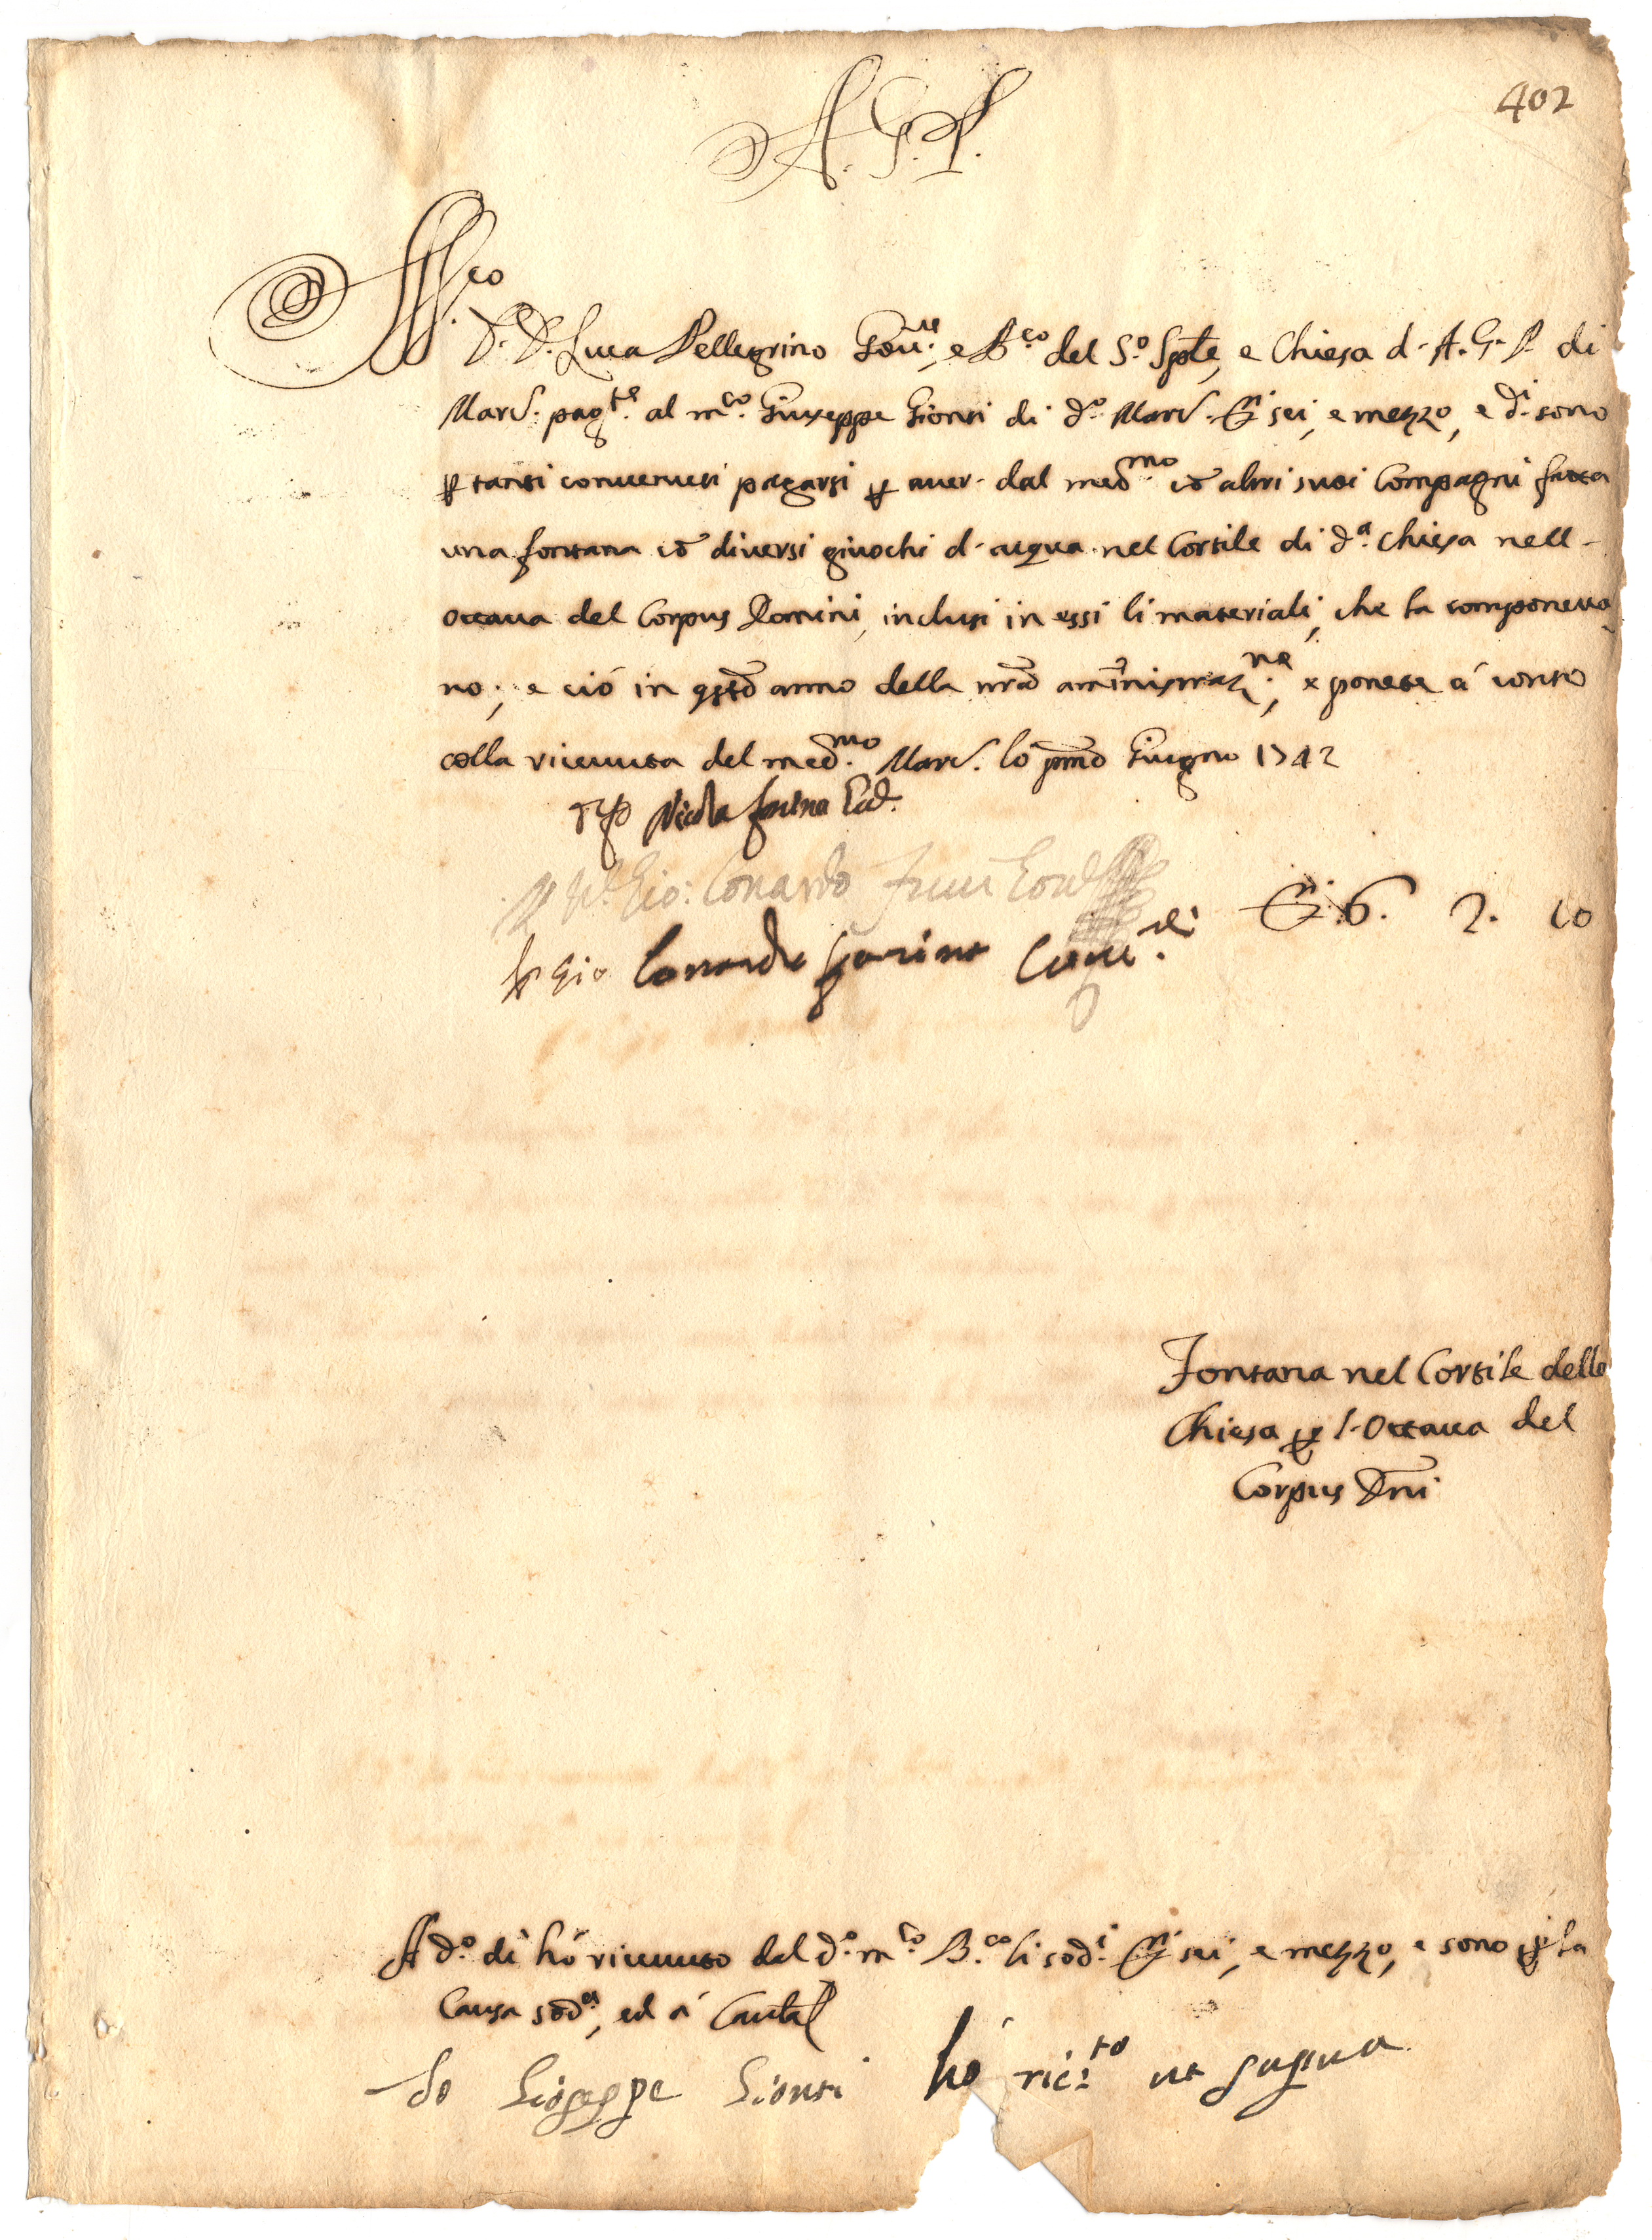 402
A. G. P.
M.co
D. D. Luca Pellegrino Gov.re, e B.co del S.o Sple, e Chiesa d. A. G. P. di
Mard. pag.te al m.co Giuseppe Gionti di d.o Mard. D.i sei, e mezzo, e d.i sono
p tanti convenuti pagarsi p aver dal med.mo cõ altri suoi Compagni fatta
una fontana cõ diversi giuochi d'acqua nel Cortile di d.a Chiesa nell'
Ottava del Corpus Domini, inclusi in essi li materiali, che la componeva
no; e ciò in qsto anno della nra amministraz.ne, e ponete á conto
colla ricevuta del med.mo Mard. lo pmo Giugno 1742
Nicola farina
Gio: Conardo
Gio Conardo farina
D.i 6. 2. 10
Fontana nel Cortile della
Chiesa p l'Ottava del
Corpus Dñi
A d.o dì hò ricevuto dal d.o m.co B.co li sod.i D.i sei, e mezzo, e sono p la
Causa sod.a, ed á Caut.a
Io Gioseppe Gionti hò ric.to ut supra